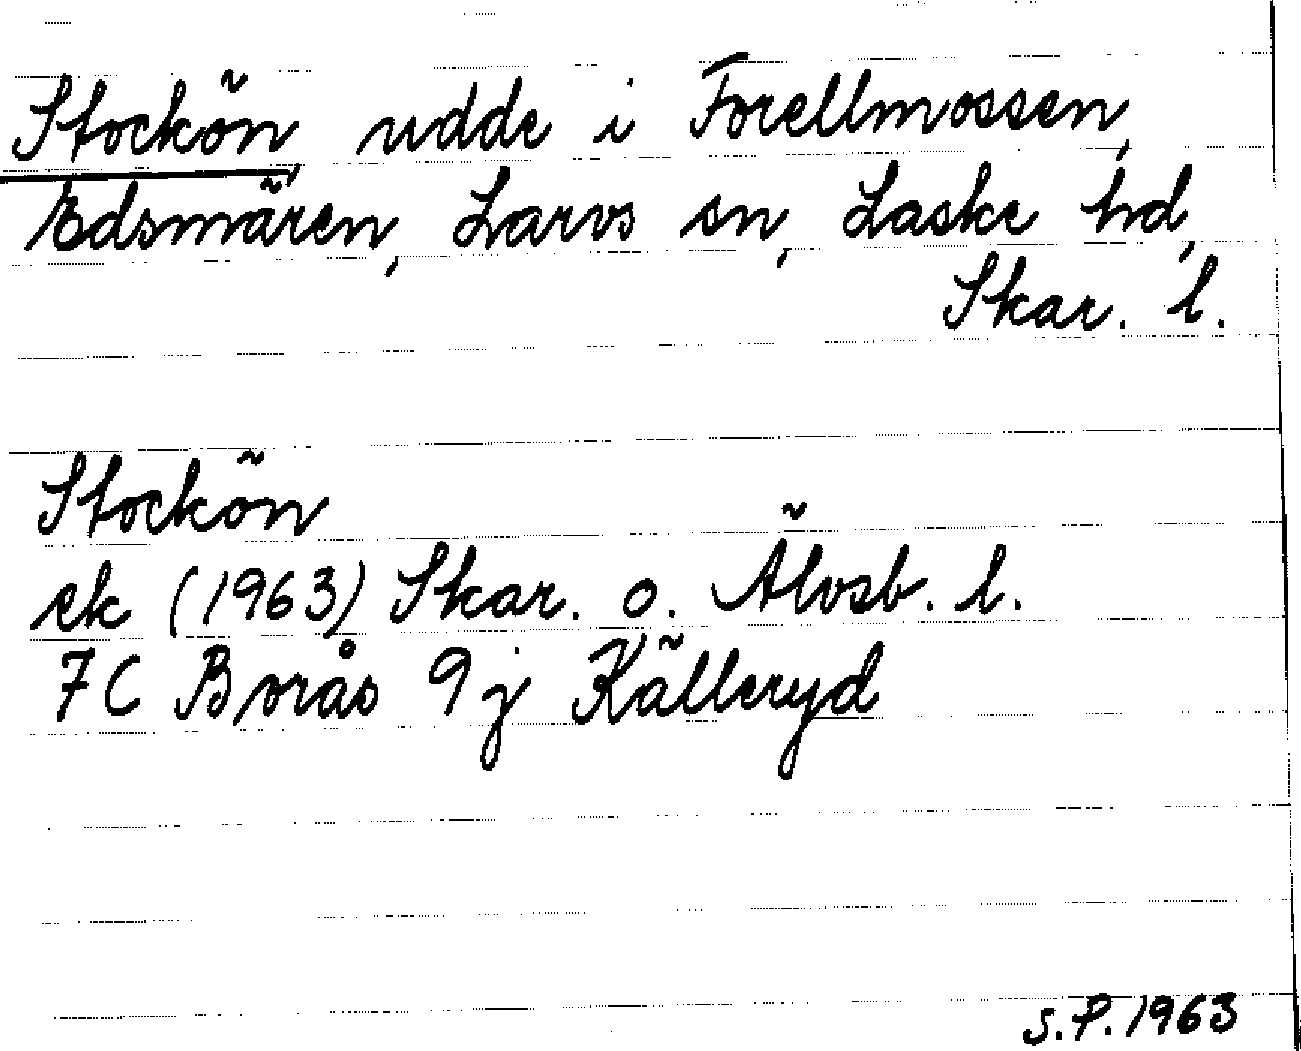 Stockön, udde i Forellmossen,
Edsmären, Larvs sn, Laske hd,
Skar. l.
Stockön
ek (1963) Skar. o. Älvsb. l.
7C Borås 9j Källeryd
S.P. 1963